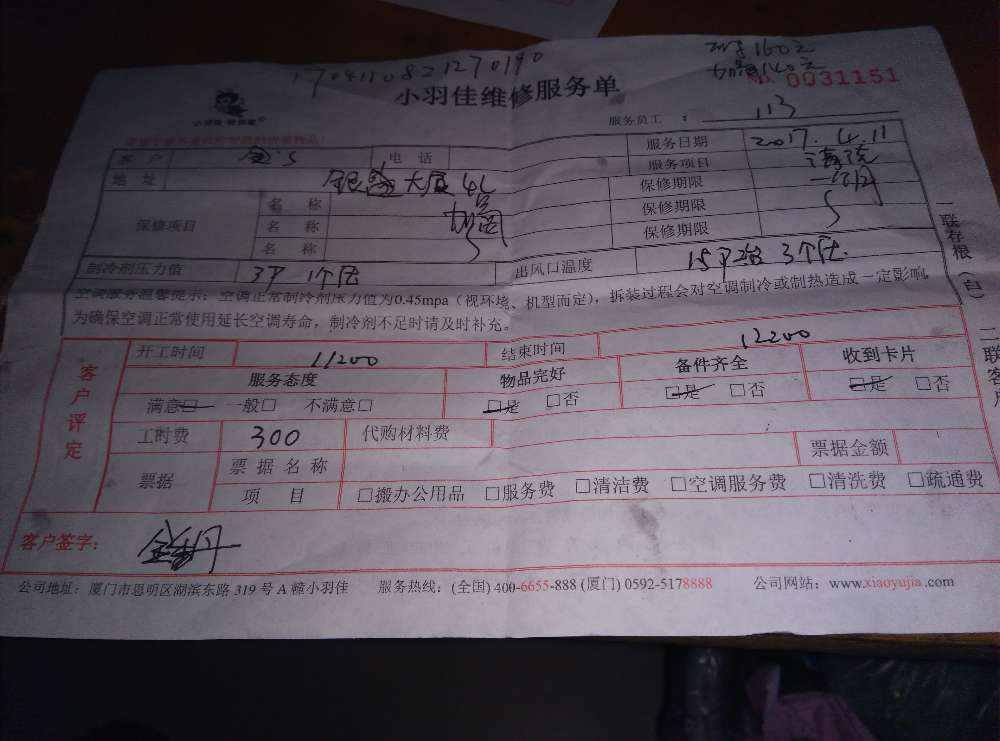 1704110821270190
160元
加氟140元
小羽佳维修服务单
No 0031151
服务员工 : 113
客户 金's 电话 服务日期 2017.4.11
地址 银 大厦4L 服务项目 清洗
保修项目 名称 保修期限 一个月
名称 加氟 保修期限
名称 保修期限
制冷剂压力值 3P 1个 出风口温度 1.5P 3个
空调服务温馨提示：空调正常制冷剂压力值为0.45mpa（视环境、机型而定），拆装过程会对空调制冷或制热造成一定影响
为确保空调正常使用延长空调寿命，制冷剂不足时请及时补充。
一联存根（白）
二联客户
客户评定
开工时间 11200 结束时间 12200
服务态度 物品完好 备件齐全 收到卡片
满意□ 一般□ 不满意□ □是 □否 □是 □否 □是 □否
工时费 300 代购材料费
票据 票据名称 票据金额
项目 □搬办公用品 □服务费 □清洁费 □空调服务费 □清洗费 □疏通费
客户签字：
公司地址：厦门市思明区湖滨东路 319 号 A 幢小羽佳 服务热线：(全国) 400-6655-888 (厦门) 0592-5178888 公司网站：www.xiaoyujia.com